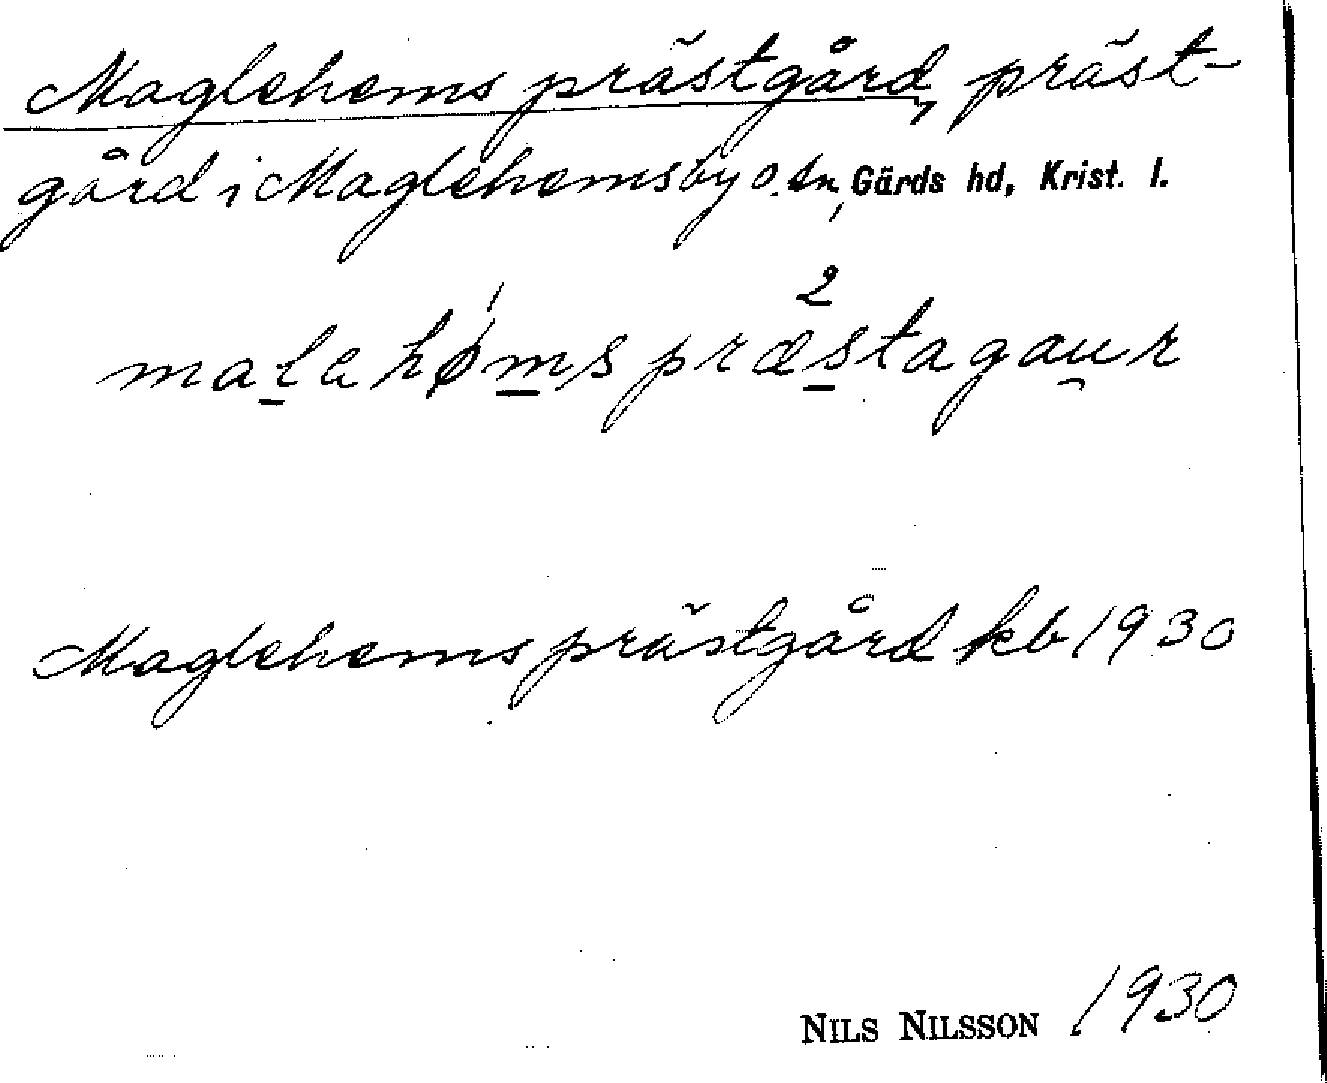 Maglehems prästgård, präst-
gård i Maglehems by o. sn, Gärds hd, Krist. l.
malehøms præstagaur
Maglehems prästgård kb 1930
NILS NILSSON 1930